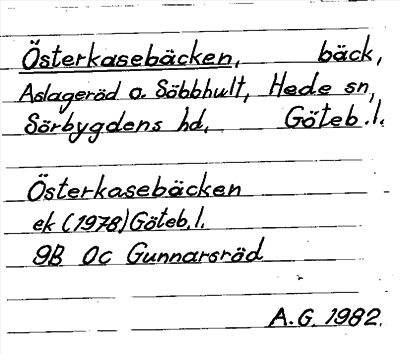 Österkasebäcken, bäck,
Aslageröd o. Säbbhult, Hede sn,
Sörbygdens hd, Göteb.l.
Österkasebäcken
ek (1978) Göteb.l.
9B 0c Gunnarsröd
A.G. 1982.